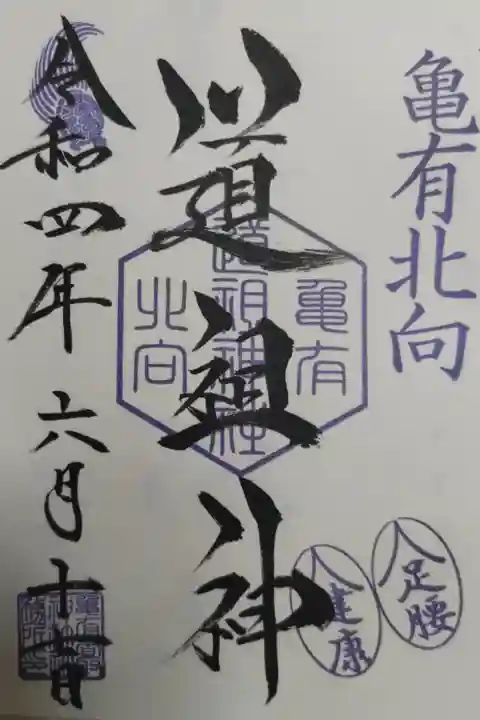 亀有北向
道祖神
令和四年 六月十
亀有
道祖神社
北向
足腰
健康